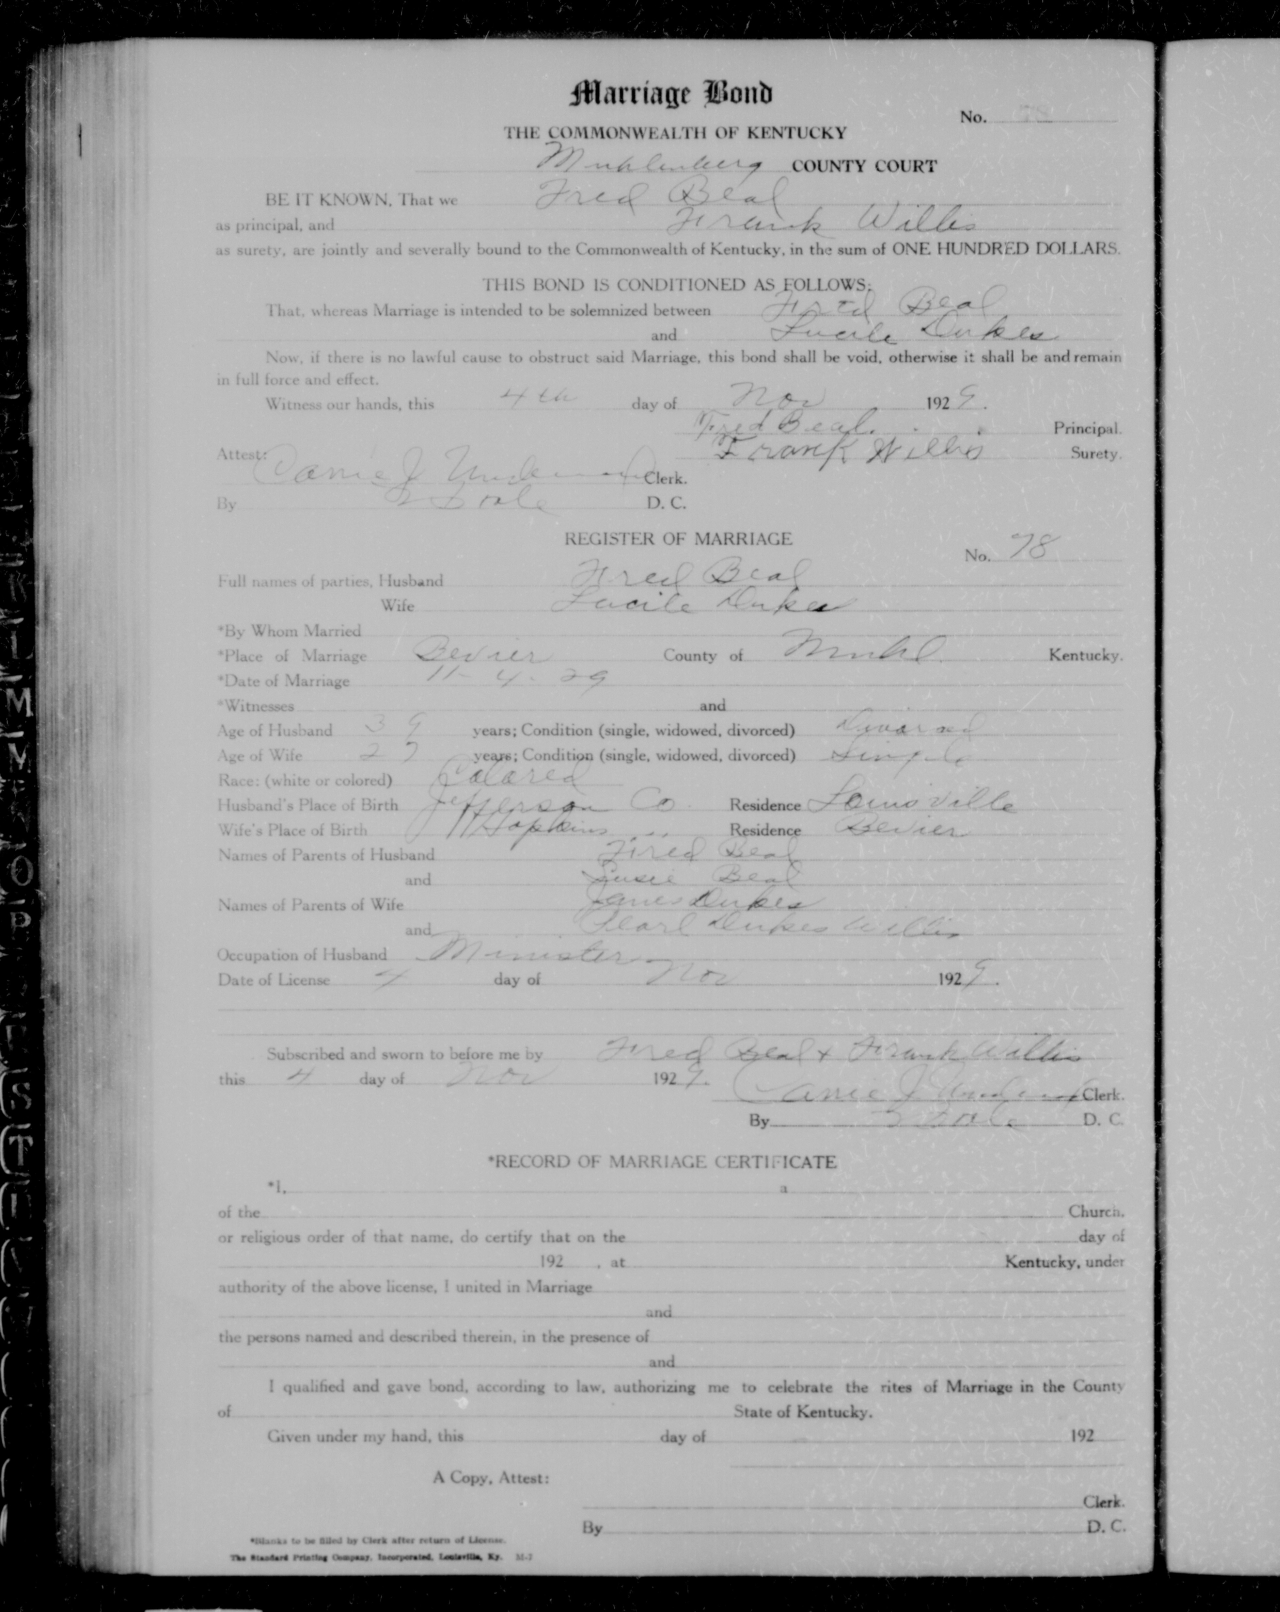 Marriage Bond
No. 78
THE COMMONWEALTH OF KENTUCKY
Muhlenberg COUNTY COURT
BE IT KNOWN, That we Fred Beal
as principal, and Frank Willis
as surety, are jointly and severally bound to the Commonwealth of Kentucky, in the sum of ONE HUNDRED DOLLARS.
THIS BOND IS CONDITIONED AS FOLLOWS:
That, whereas Marriage is intended to be solemnized between Fred Beal
and Lucile Dukes
Now, if there is no lawful cause to obstruct said Marriage, this bond shall be void, otherwise it shall be and remain
in full force and effect.
Witness our hands, this 4th day of Nov 1929.
Fred Beal. Principal.
Attest: Frank Willis Surety.
Clerk.
By D. C.
REGISTER OF MARRIAGE
No. 78
Full names of parties, Husband Fred Beal
Wife Lucile Dukes
*By Whom Married
*Place of Marriage Bevier County of Muhl. Kentucky.
*Date of Marriage 11-4-29
*Witnesses and
Age of Husband 39 years; Condition (single, widowed, divorced) Divorced
Age of Wife 27 years; Condition (single, widowed, divorced) Single
Race: (white or colored) Colored
Husband's Place of Birth Jefferson Co. Residence Louisville
Wife's Place of Birth Hopkins " Residence Bevier
Names of Parents of Husband Fred Beal
and Susie Beal
Names of Parents of Wife James Dukes
and Pearl Dukes Willis
Occupation of Husband Minister
Date of License 4 day of Nov 1929.
Subscribed and sworn to before me by Fred Beal + Frank Willis
this 4 day of Nov 1929.
Clerk.
By D. C.
*RECORD OF MARRIAGE CERTIFICATE
*I, a
of the Church,
or religious order of that name, do certify that on the day of
192 , at Kentucky, under
authority of the above license, I united in Marriage
and
the persons named and described therein, in the presence of
and
I qualified and gave bond, according to law, authorizing me to celebrate the rites of Marriage in the County
of State of Kentucky.
Given under my hand, this day of 192
A Copy, Attest:
Clerk.
By D. C.
*Blanks to be filled by Clerk after return of License.
The Standard Printing Company, Incorporated, Louisville, Ky. M-7